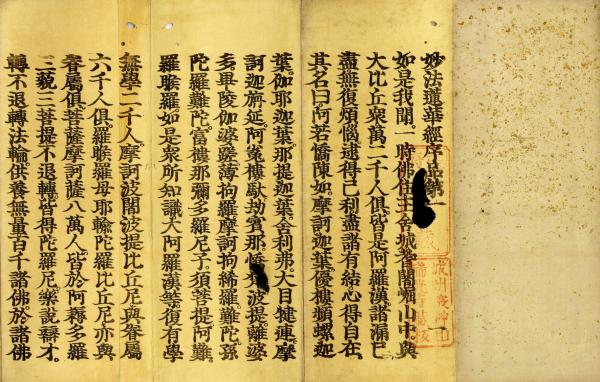 妙法蓮華經序品第一
如是我聞一時佛住王舍城耆闍崛山中與
大比丘衆萬二千人俱皆是阿羅漢諸漏已
盡無復煩惱逮得己利盡諸有結心得自在
其名曰阿若憍陳如摩訶迦葉優樓頻螺迦
葉伽耶迦葉那提迦葉舍利弗大目犍連摩
訶迦旃延阿㝹樓馱劫賓那憍梵波提離婆
多畢陵伽婆蹉薄拘羅摩訶拘絺羅難陀孫
陀羅難陀富樓那彌多羅尼子須菩提阿難
羅睺羅如是衆所知識大阿羅漢等復有學
無學二千人摩訶波闍波提比丘尼與眷屬
六千人俱羅睺羅母耶輸陀羅比丘尼亦與
眷屬俱菩薩摩訶薩八萬人皆於阿耨多羅
三藐三菩提不退轉皆得陀羅尼樂說辯才
轉不退轉法輪供養無量百千諸佛於諸佛